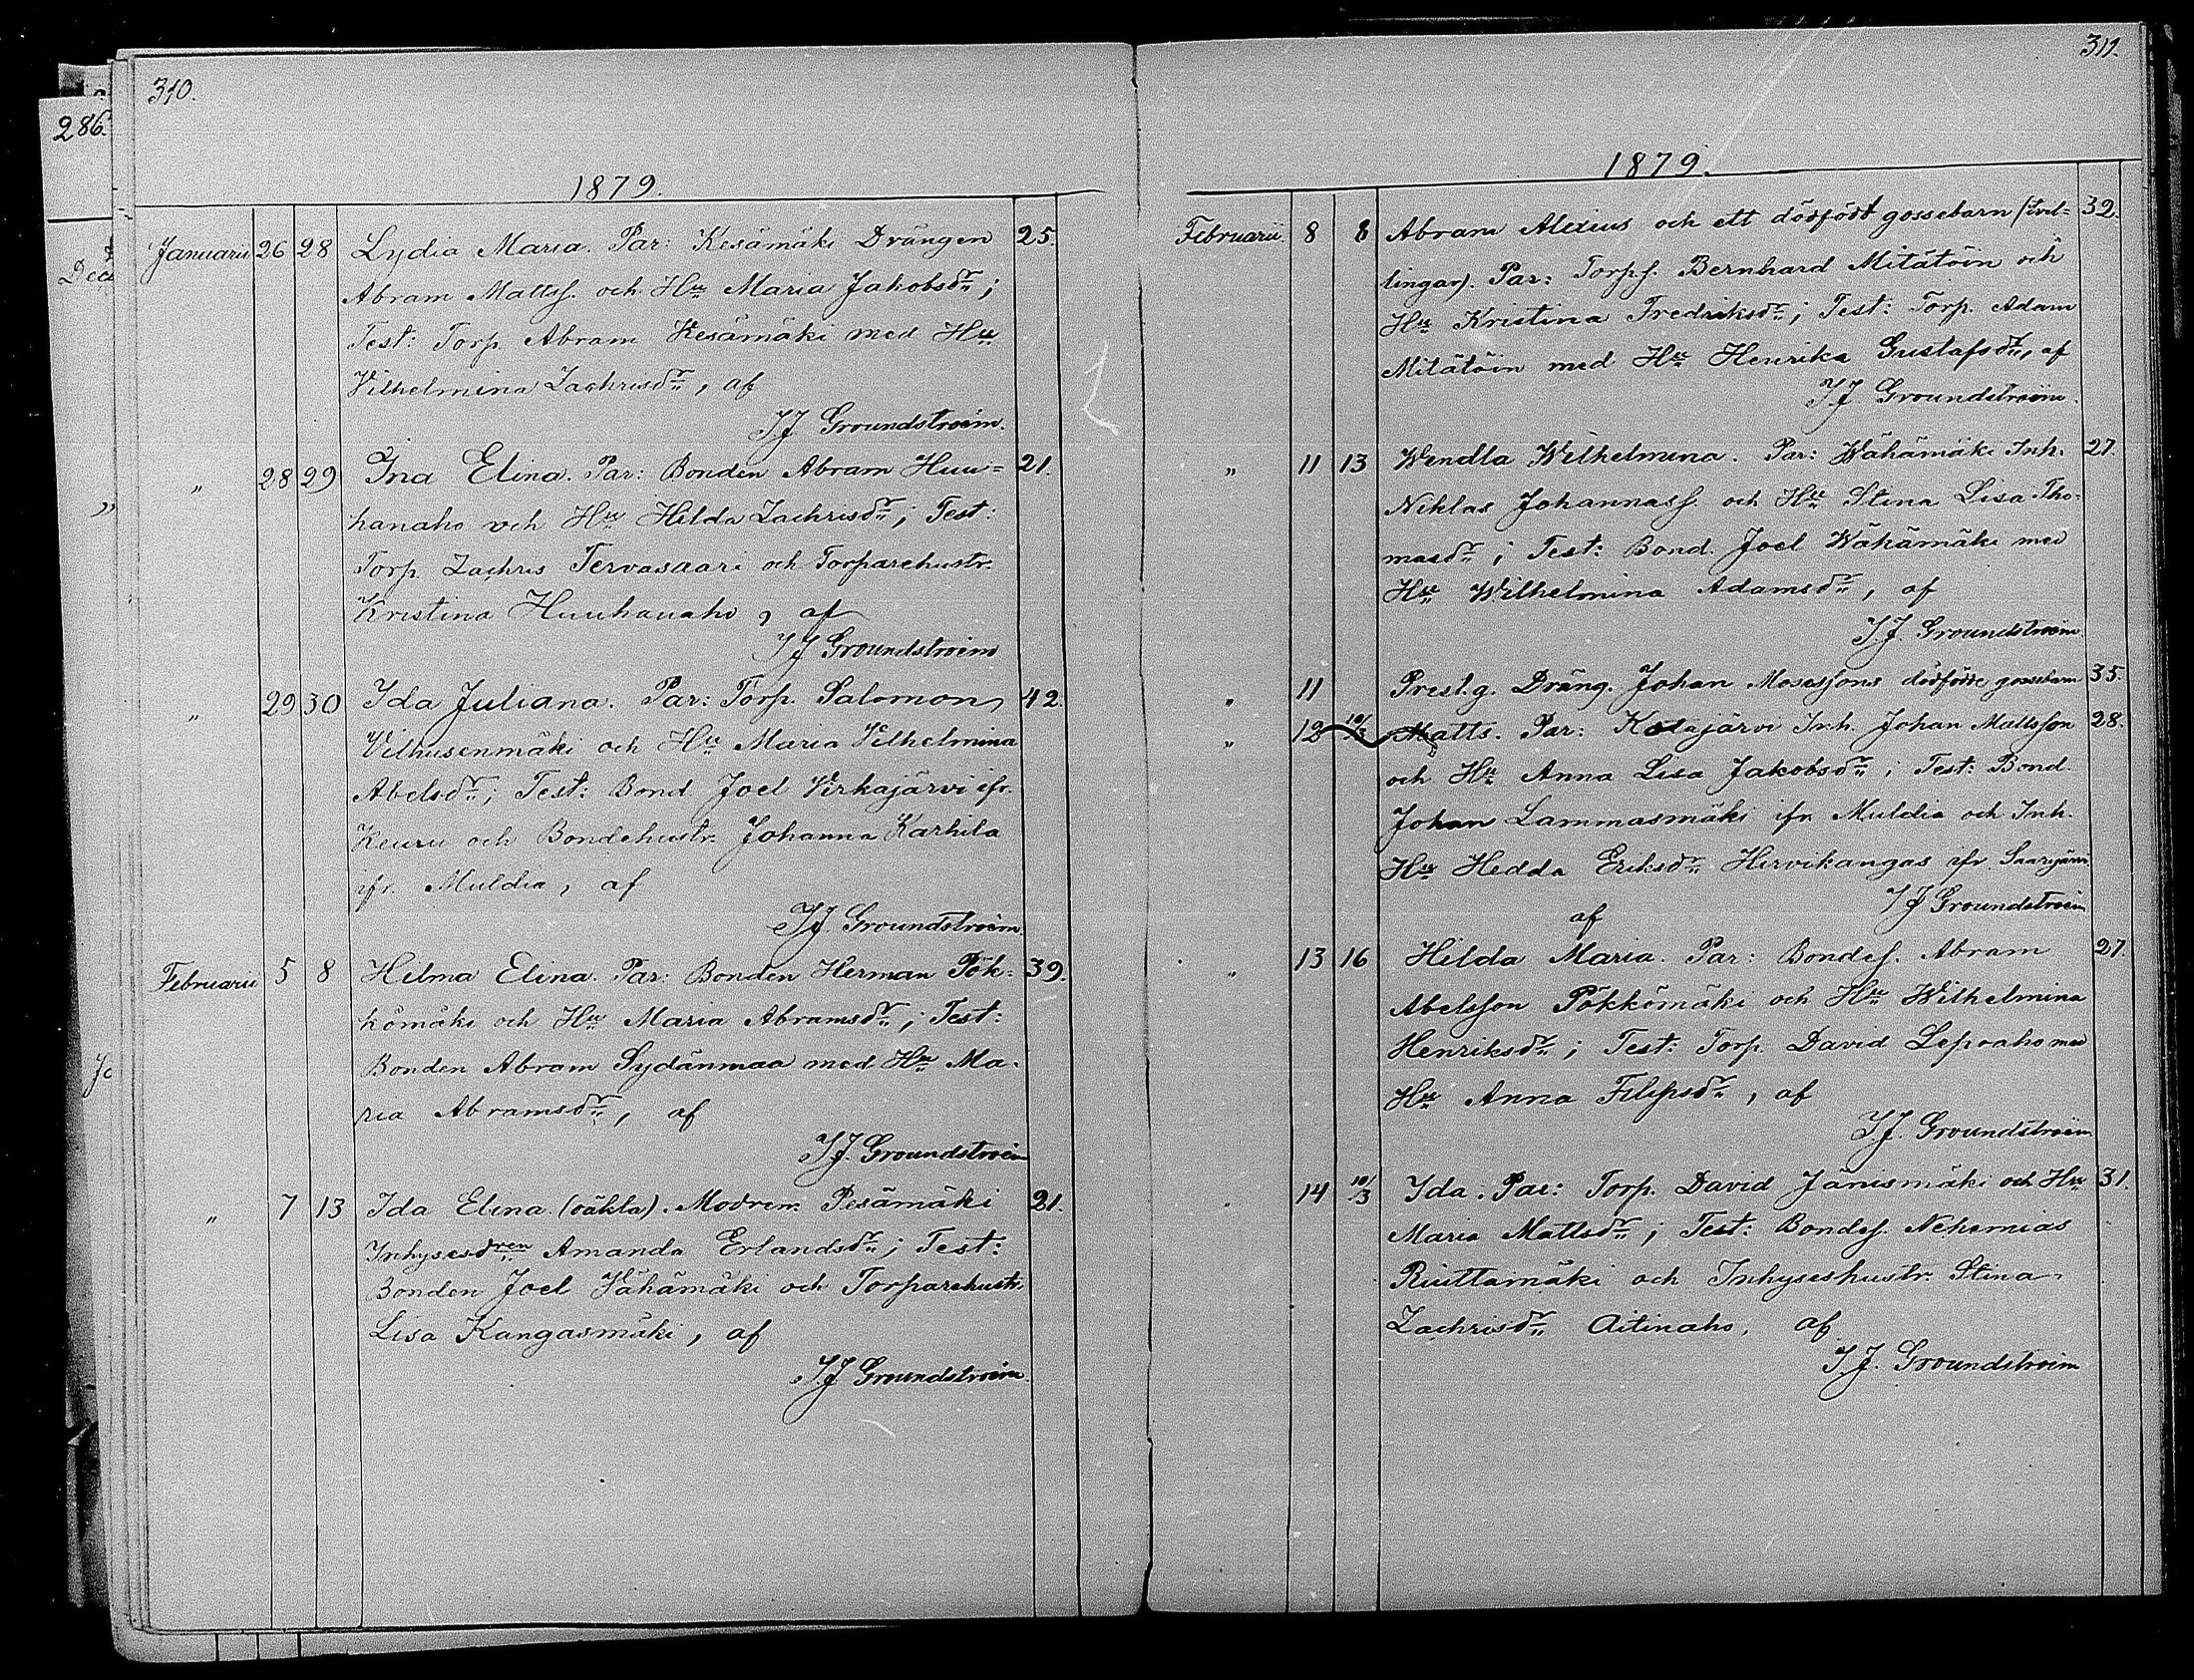 310.
286.
1879.
Januarii 26 28 Lydia Maria. Par: Kesämäki Drängen 25.
Abram Mattss. och Hu Maria Jakobsdr;
Test: Torp. Abram Kesämäki med Hu
Vilhelmina Zachrisdr, af
I.J. Groundstroëm.
" 28 29 Ina Elina. Par: Bonden Abram Huu= 21.
hanaho och Hu Hilda Zachrisdr; Test:
Torp. Zachris Tervasaari och Torparehustr.
Kristina Huuhanaho, af
I J Groundstroëm
" 29 30 Ida Juliana. Par: Torp. Salomon 42.
Vilhusenmäki och Hu Maria Vilhelmina
Abelsdr; Test: Bond Joel Virkajärvi ifr.
Keuru och Bondehustr. Johanna Karhila
ifr. Muldia, af
I J. Groundstroëm.
Februarii 5 8 Hilma Elina. Par: Bonden Herman Pök= 39.
kömäki och Hu Maria Abramsdr; Test:
Bonden Abram Sydänmaa med Hu Ma-
ria Abramsdr, af
I J. Groundstroëm
" 7 13 Ida Elina (oäkta). Modren: Pesämäki 21.
Inhysesdren Amanda Erlandsdr; Test:
Bonden Joel Vähämäki och Torparehustr.
Lisa Kangasmäki, af
I.J Groundstroëm.
311.
1879.
Februarii. 8 8 Abram Alexius och ett dödfödt gossebarn (tvil= 32.
lingar). Par: Torps. Bernhard Mitätöin och
Hu Kristina Fredriksdr; Test: Torp. Adam
Mitätöin med Hu Henrika Gustafsdr, af
I J Groundstroëm.
" 11 13 Wendla Wilhelmina. Par: Wähämäki Inh. 27.
Niklas Johannass. och Hu Stina Lisa Tho-
masdr; Test: Bond. Joel Wähämäki med
Hu Wilhelmina Adamsdr, af
I.J. Groundstroëm
" 11 Prest.g. Dräng. Johan Mosessons dödfödde gossebarn 35.
" 12 10/3 Matts. Par: Kolajärvi Inh. Johan Mattsson 28.
och Hu Anna Lisa Jakobsdr; Test: Bond.
Johan Lammasmäki ifr Muldia och Inh.
Hu Hedda Eriksdr Hirvikangas ifr Saarijärvi
af I J Groundstroëm
" 13 16 Hilda Maria. Par: Bondes. Abram 27.
Abelsson Pökkömäki och Hu Wilhelmina
Henriksdr; Test: Torp. David Lepoaho med
Hu Anna Filipsdr, af
I.J. Groundstroëm
" 14 10/3 Ida. Par: Torp. David Jänismäki och Hu 31.
Maria Mattsdr; Test: Bondes. Nehemias
Riuttamäki och Inhyseshustr. Stina
Zachrisdr Aitinaho, af
I.J. Groundstroëm